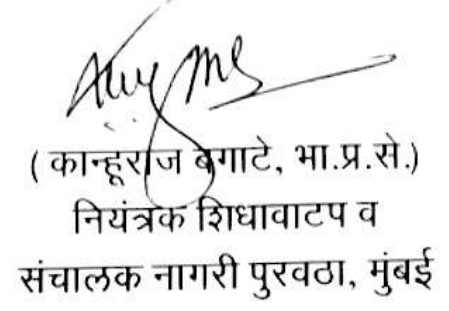 ( कान्हूराज बगाटे, भा.प्र.से.)
नियंत्रक शिधावाटप व
संचालक नागरी पुरवठा, मुंबई